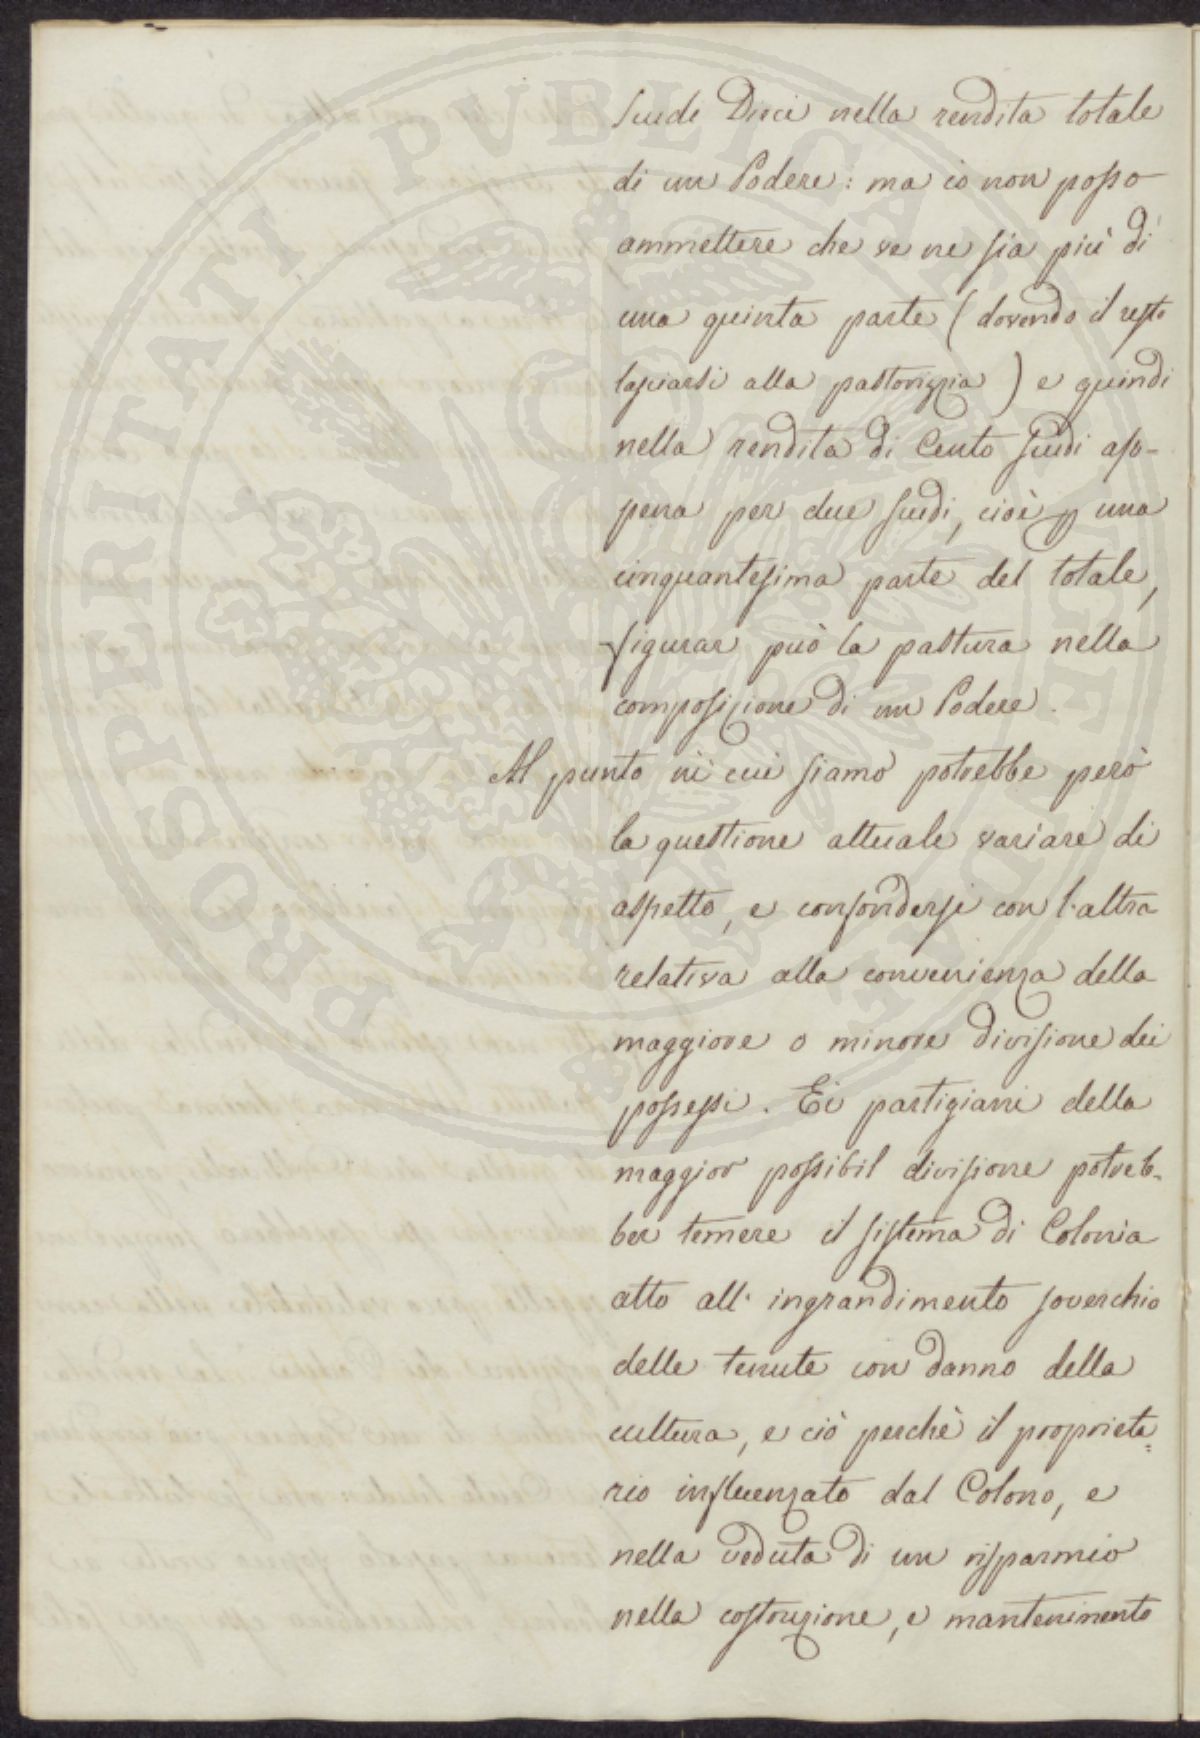 Scudi Dieci nella rendita totale
di un Podere: ma io non posso
ammettere che ve ne sia più di
una quinta parte (dovendo il resto
lasciarsi alla pastorizia) e quindi
nella rendita di Cento Scudi ap-
pena per due Scudi, cioè p una
cinquantesima parte del totale,
figurar può la pastura nella
composizione di un Podere.
Al punto in cui siamo potrebbe però
la questione attuale variare di
aspetto, e confondersi con l'altra
relativa alla convenienza della
maggiore o minore divisione dei
possessi. Ei partigiani della
maggior possibil divisione potreb-
ber temere il sistema di Colonia
atto all' ingrandimento soverchio
delle tenute con danno della
cultura, e ciò perchè il proprieta=
rio influenzato dal Colono, e
nella veduta di un risparmio
nella costruzione, e mantenimento
PROSPERITATI PVBLICAE AVGENDAE